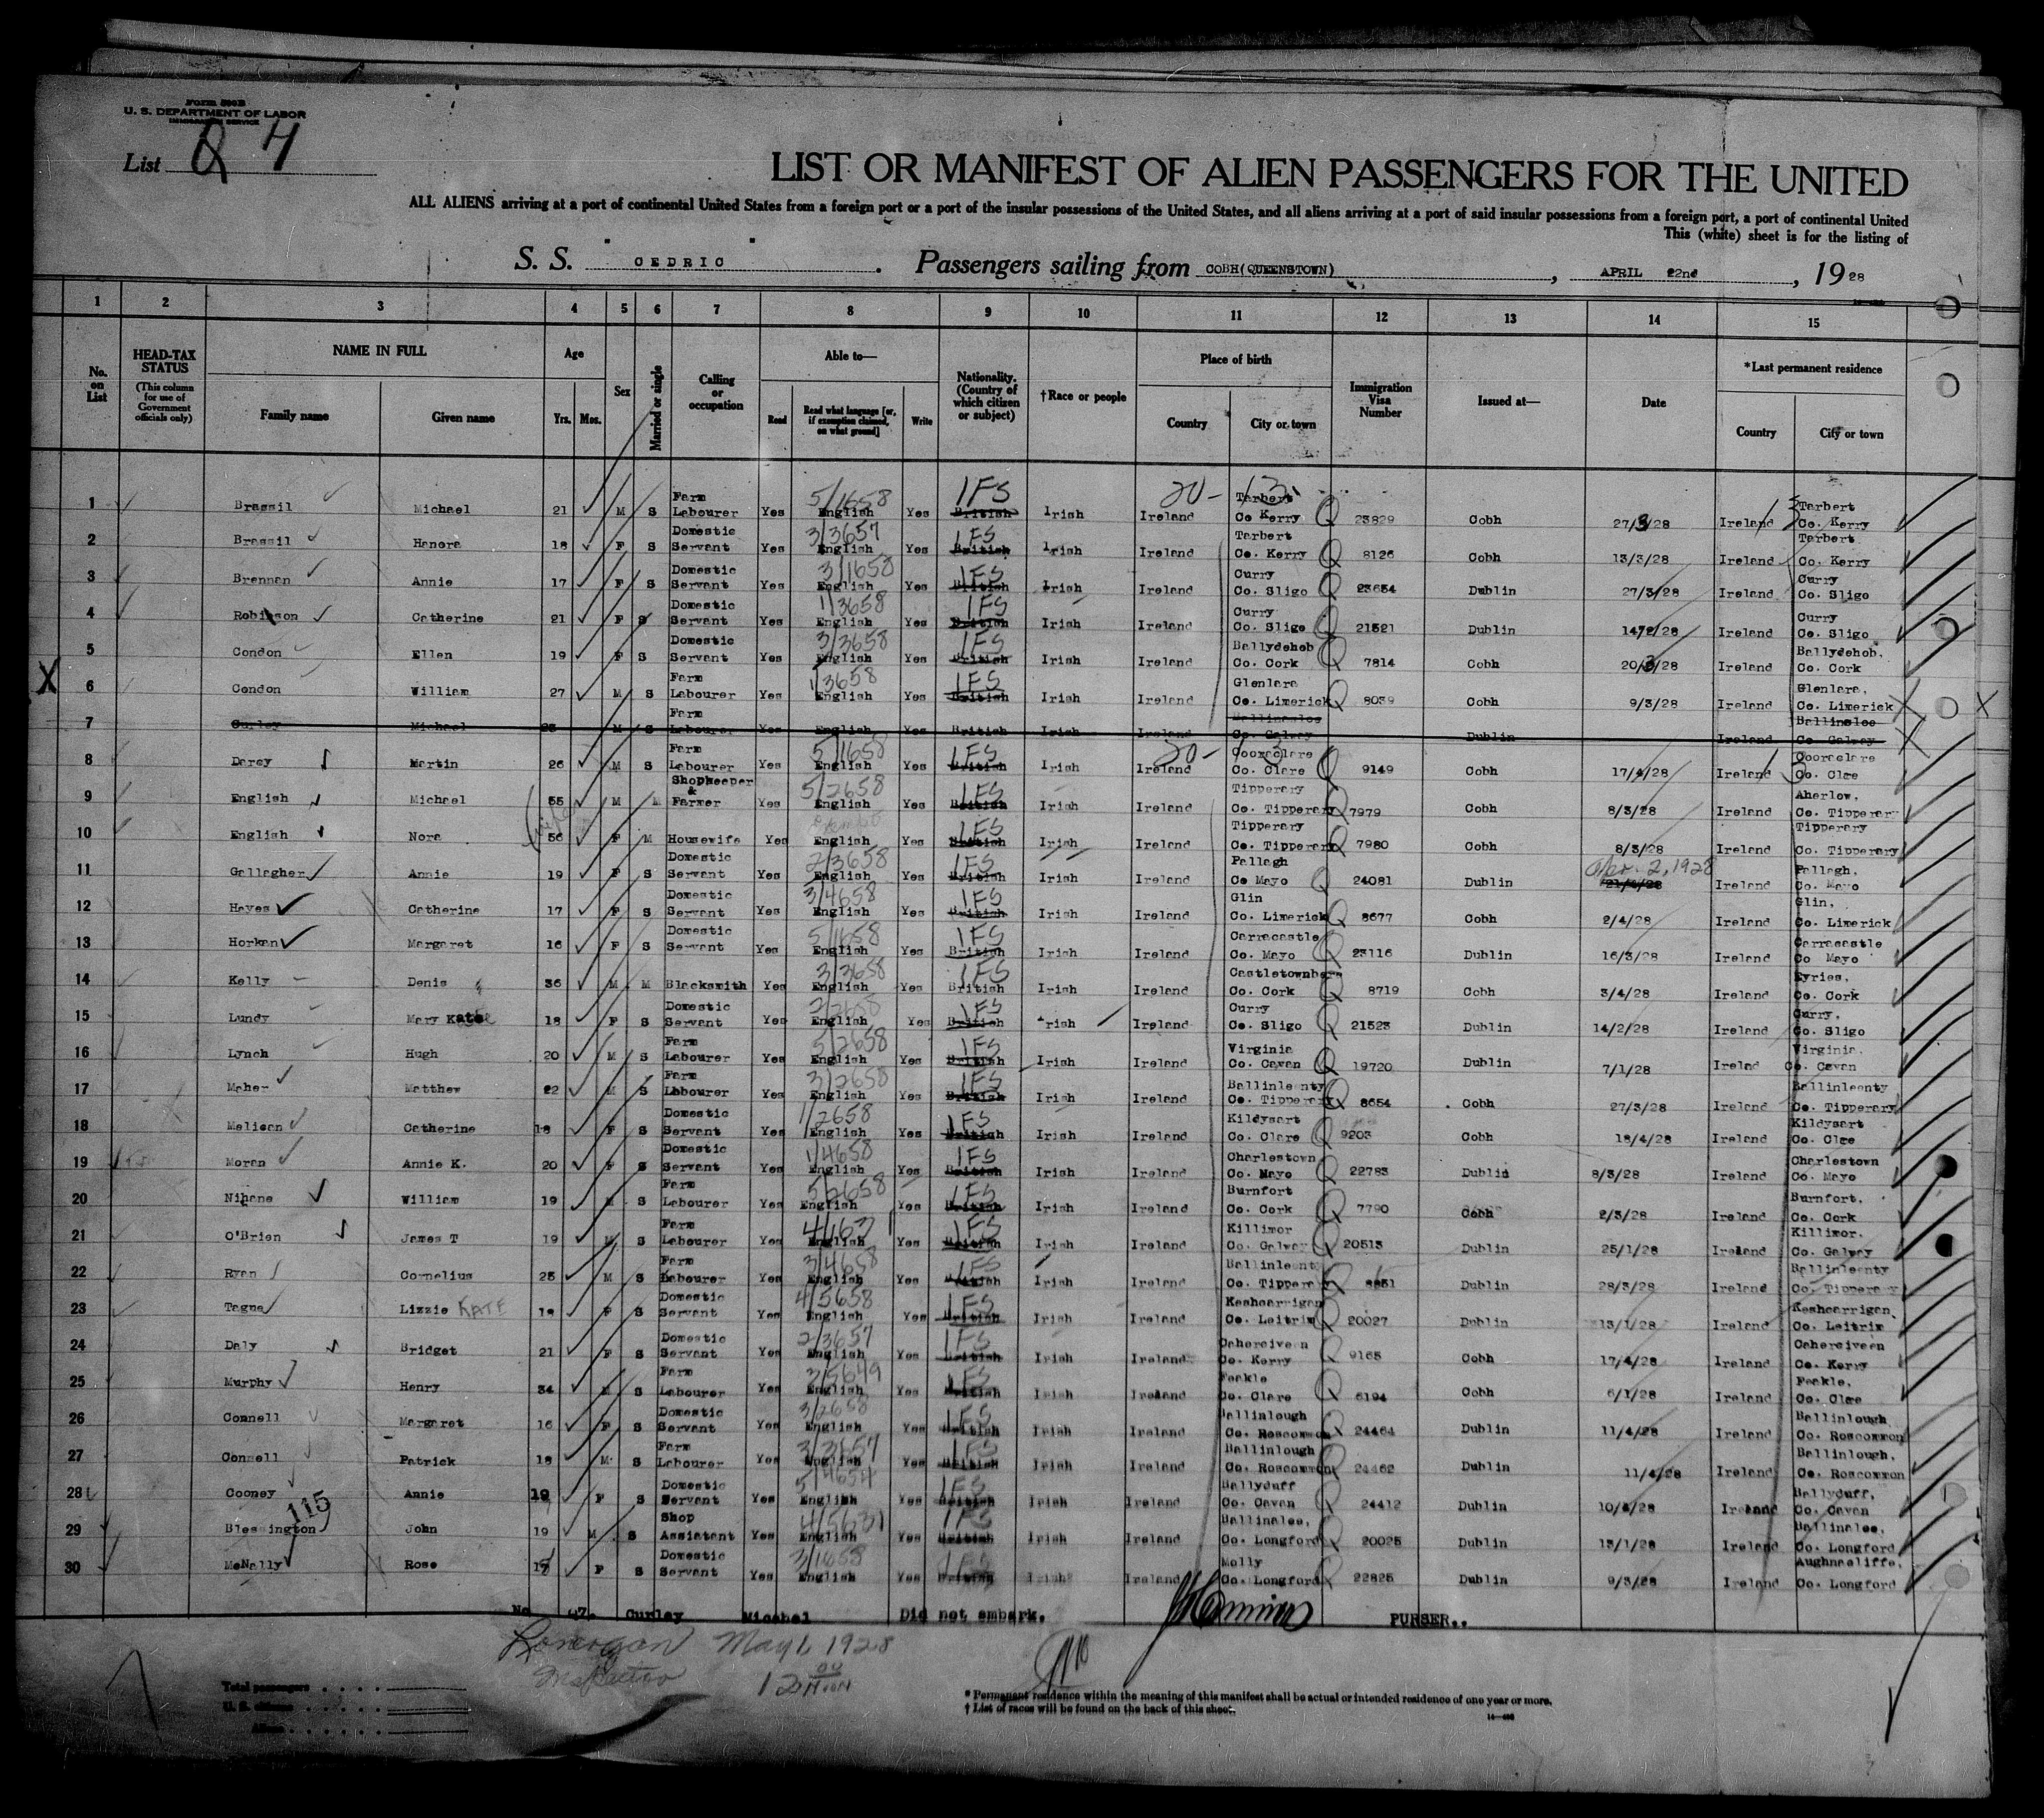 Form 500B
U. S. DEPARTMENT OF LABOR
IMMIGRATION SERVICE
List Q 4
LIST OR MANIFEST OF ALIEN PASSENGERS FOR THE UNITED
ALL ALIENS arriving at a port of continental United States from a foreign port or a port of the insular possessions of the United States, and all aliens arriving at a port of said insular possessions from a foreign port, a port of continental United
This (white) sheet is for the listing of
S. S. CEDRIC . Passengers sailing from COBH(QUEENSTOWN) , APRIL 22nd , 19 28
1 2 3 4 5 6 7 8 9 10 11 12 13 14 15
No. on List HEAD-TAX STATUS (This column for use of Government officials only) NAME IN FULL Family name Given name Age Yrs. Mos. Sex Married or single Calling or occupation Able to— Read Read what language [or, if exemption claimed, on what ground] Write Nationality. (Country of which citizen or subject) †Race or people Place of birth Country City or town Immigration Visa Number Issued at— Date *Last permanent residence Country City or town
1 Brassil Michael 21 M S Farm Labourer Yes 5/1658 English Yes IFS British Irish 20- Ireland Tarbert Co Kerry Q 23829 Cobh 27/3/28 Ireland Tarbert Co. Kerry
2 Brassil Hanora 18 F S Domestic Servant Yes 3/3657 English Yes IFS British Irish Ireland Tarbert Co. Kerry Q 8126 Cobh 13/3/28 Ireland Tarbert Co. Kerry
3 Brennan Annie 17 F S Domestic Servant Yes 3/1658 English Yes IFS British Irish Ireland Curry Co. Sligo Q 23654 Dublin 27/3/28 Ireland Curry Co. Sligo
4 Robinson Catherine 21 F S Domestic Servant Yes 1/3658 English Yes IFS British Irish Ireland Curry Co. Sligo Q 21521 Dublin 14/2/28 Ireland Curry Co. Sligo
5 Condon Ellen 19 F S Domestic Servant Yes 3/3658 English Yes IFS British Irish Ireland Ballydehob Co. Cork Q 7814 Cobh 20/3/28 Ireland Ballydehob, Co. Cork
X 6 Condon William 27 M S Farm Labourer Yes 1/3658 English Yes IFS British Irish Ireland Glenlara Co. Limerick Q 8039 Cobh 9/3/28 Ireland Glenlara, Co. Limerick X
7 Curley Michael 23 M S Farm Labourer Yes English Yes British Irish Ireland Ballinasloe Co. Galway Dublin Ireland Ballinsloe Co Galway
8 Darcy Martin 26 M S Farm Labourer Yes 5/1658 English Yes IFS British Irish 20- Ireland Cooraclare Co. Clare Q 9149 Cobh 17/4/28 Ireland Cooraclare Co. Clae
9 English Michael 55 M M Shopkeeper & Farmer Yes 5/2658 English Yes IFS British Irish Ireland Tipperary Co. Tipperary Q 7979 Cobh 8/3/28 Ireland Aherlow, Co. Tipperary
10 English Nora 56 F M Housewife Yes English Yes IFS British Irish Ireland Tipperary Co. Tipperary Q 7980 Cobh 8/3/28 Ireland Tipperary Co. Tipperary
11 Gallagher Annie 19 F S Domestic Servant Yes 2/3658 English Yes IFS British Irish Ireland Pallagh Co Mayo Q 24081 Dublin Apr. 2, 1928 Ireland Pallagh, Co. Mayo
12 Hayes Catherine 17 F S Domestic Servant Yes 3/4658 English Yes IFS British Irish Ireland Glin Co. Limerick Q 8677 Cobh 2/4/28 Ireland Glin, Co. Limerick
13 Horkan Margaret 16 F S Domestic Servant Yes 5/1658 English Yes IFS British Irish Ireland Carracastle Co. Mayo Q 23116 Dublin 16/3/28 Ireland Carracastle Co Mayo
14 Kelly Denis 36 M M Blacksmith Yes 3/3658 English Yes IFS British Irish Ireland Castletownbere Co. Cork Q 8719 Cobh 3/4/28 Ireland Eyries, Co. Cork
15 Lundy Mary Kate 18 F S Domestic Servant Yes 2/2658 English Yes IFS British Irish Ireland Curry Co. Sligo Q 21523 Dublin 14/2/28 Ireland Curry, Co. Sligo
16 Lynch Hugh 20 M S Farm Labourer Yes 5/2658 English Yes IFS British Irish Ireland Virginia Co. Cavan Q 19720 Dublin 7/1/28 Irelad Virginia. Co. Cavan
17 Maher Matthew 22 M S Farm Labourer Yes 3/2658 English Yes IFS British Irish Ireland Ballinleenty Co. Tipperary Q 8654 Cobh 27/3/28 Ireland Ballinleenty Co. Tipperary
18 Melican Catherine 18 F S Domestic Servant Yes 1/2658 English Yes IFS British Irish Ireland Kildysart Co. Clare Q 9203 Cobh 18/4/28 Ireland Kildysart Co. Clae
19 Moran Annie K. 20 F S Domestic Servant Yes 1/4658 English Yes IFS British Irish Ireland Charlestown Co. Mayo Q 22783 Dublin 8/3/28 Ireland Charlestown Co. Mayo
20 Nihane William 19 M S Farm Labourer Yes 5/2658 English Yes IFS British Irish Ireland Burnfort Co. Cork Q 7790 Cobh 2/3/28 Ireland Burnfort, Co. Cork
21 O'Brien James T 19 M S Farm Labourer Yes 4/1631 English Yes IFS British Irish Ireland Killimor Co. Galway Q 20513 Dublin 25/1/28 Ireland Killimor. Co. Galway
22 Ryan Cornelius 25 M S Farm Labourer Yes 3/4658 English Yes IFS British Irish Ireland Ballinleenty Co. Tipperary Q 8651 Dublin 28/3/28 Ireland Ballinleenty Co. Tipperary
23 Tague Lizzie KATE 18 F S Domestic Servant Yes 4/5658 English Yes IFS British Irish Ireland Keshcarrigan Co. Leitrim Q 20027 Dublin 13/1/28 Ireland Keshcarrigan Co. Leitrim
24 Daly Bridget 21 F S Domestic Servant Yes 2/3657 English Yes IFS British Irish Ireland Caherciveen Co. Kerry Q 9165 Cobh 17/4/28 Ireland Caherciveen Co. Kerry
25 Murphy Henry 34 M S Farm Labourer Yes 2/5649 English Yes IFS British Irish Ireland Feakle Co. Clare Q 6194 Cobh 6/1/28 Ireland Feakle, Co. Clae
26 Connell Margaret 16 F S Domestic Servant Yes 3/2658 English Yes IFS British Irish Ireland Ballinlough Co. Roscommon Q 24464 Dublin 11/4/28 Ireland Ballinlough Co. Roscommon
27 Connell Patrick 18 M S Farm Labourer Yes 3/3657 English Yes IFS British Irish Ireland Ballinlough Co. Roscommon Q 24462 Dublin 11/4/28 Ireland Ballinlough, Co. Roscommon
28 Cooney Annie 19 F S Domestic Servant Yes 5/4654 English Yes IFS British Irish Ireland Ballyduff Co. Cavan Q 24412 Dublin 10/4/28 Ireland Ballyduff, Co. Cavan
29 Blessington 115 John 19 M S Shop Assistant Yes 4/5631 English Yes IFS British Irish Ireland Ballinalee, Co. Longford Q 20025 Dublin 13/1/28 Ireland Ballinalee, Co. Longford
30 McNally Rose 17 F S Domestic Servant Yes 3/1658 English Yes IFS British Irish Ireland Molly Co. Longford Q 22825 Dublin 9/3/28 Ireland Aughnacliffe, Co. Longford
No 47. Curley Micahel Did not embark. PURSER..
May 1, 1928
Inspector 12 00 noon
Total passengers
U. S. citizens
Aliens
* Permanent residence within the meaning of this manifest shall be actual or intended residence of one year or more.
† List of races will be found on the back of this sheet.